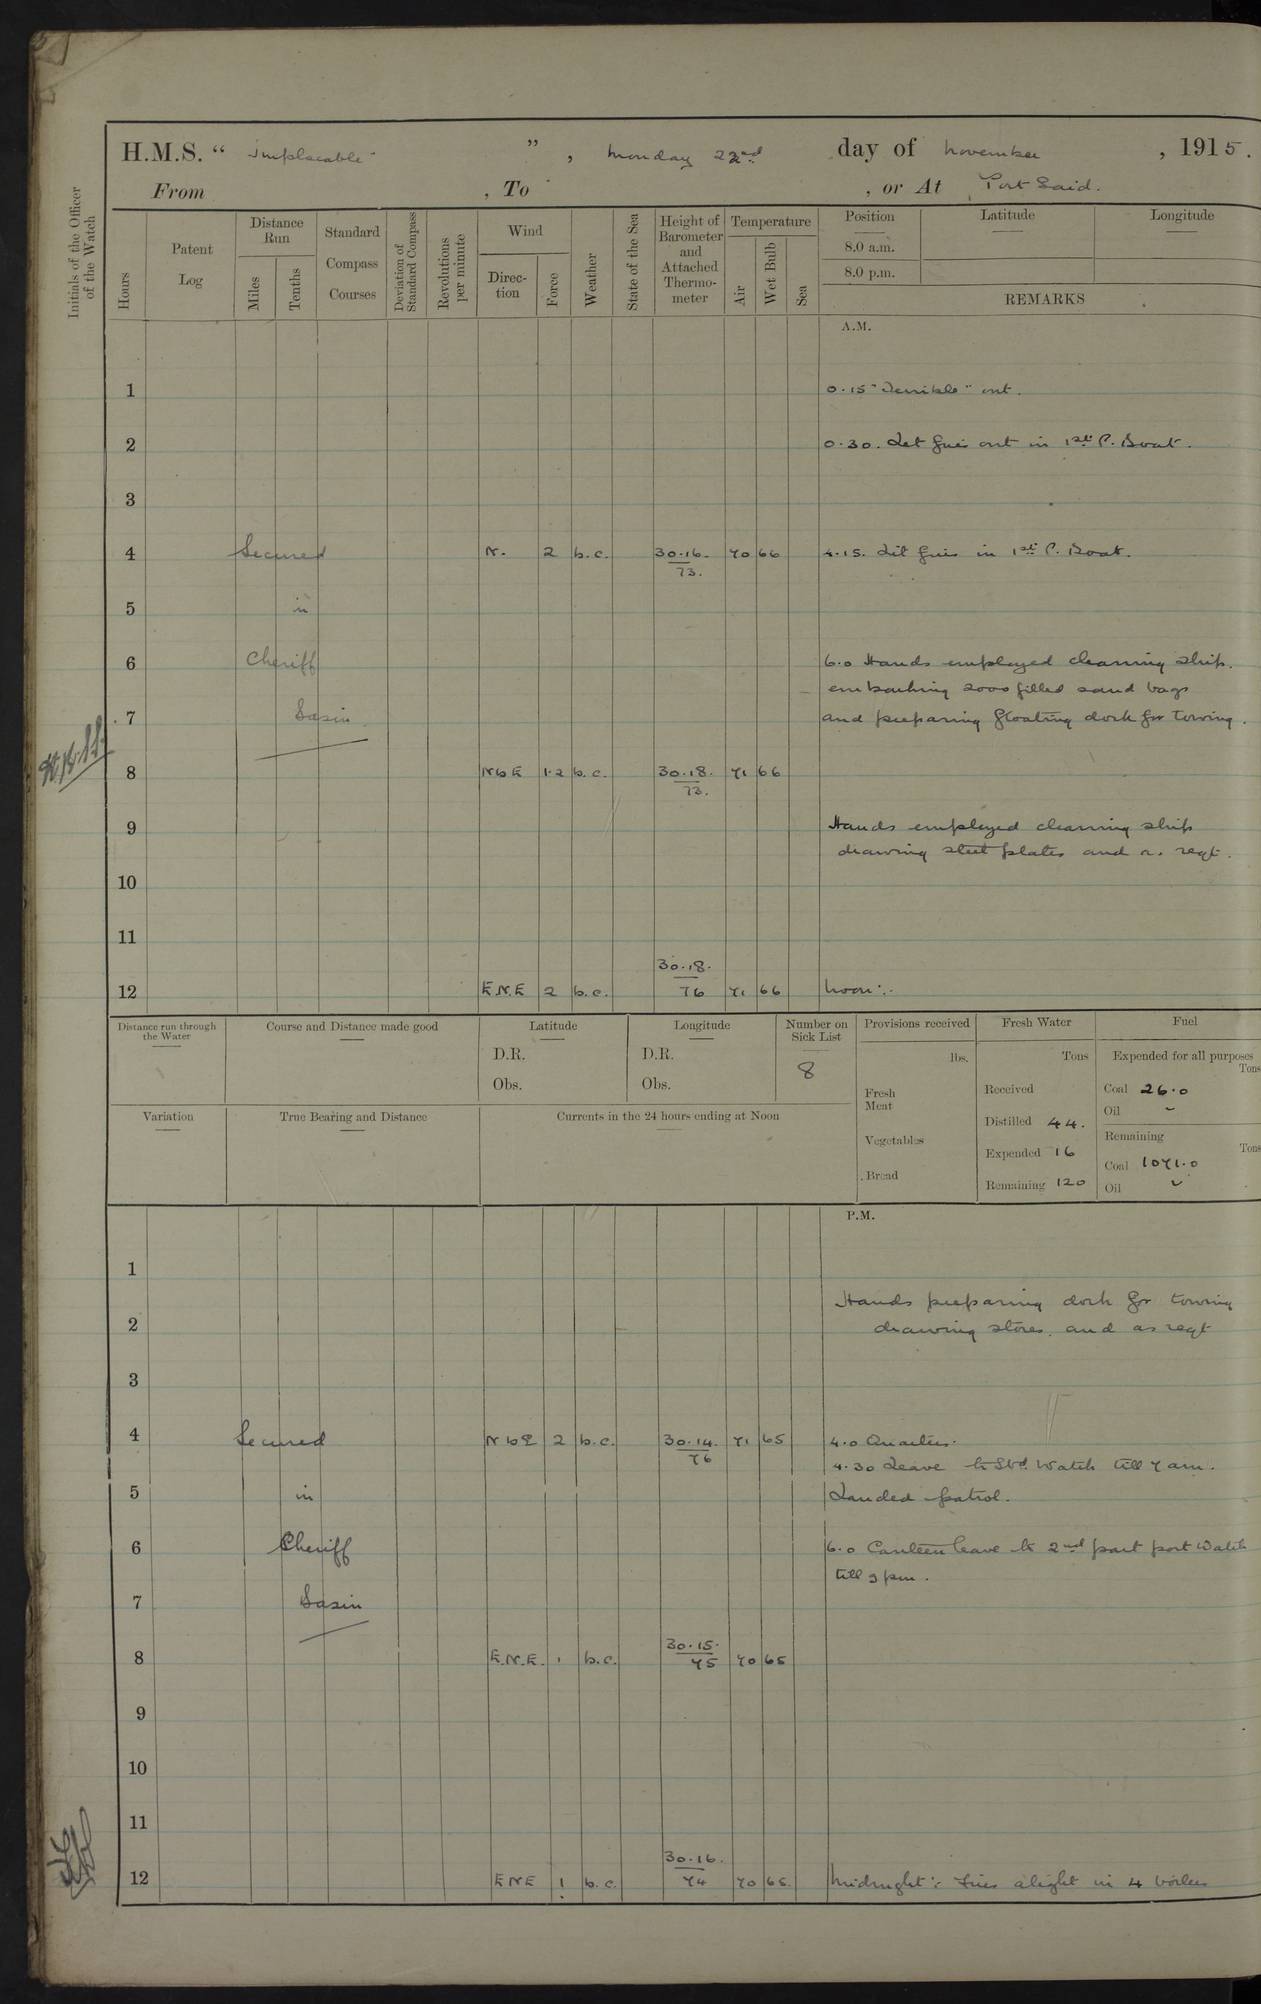 H.M.S. “ Implacable ” , Monday 22nd day of November , 1915.
From , To , or At Port Said.
Initials of the Officer of the Watch
Hours
Patent Log
Distance Run
Miles
Tenths
Standard Compass Courses
Deviation of Standard Compass
Revolutions per minute
Wind
Direction
Force
Weather
State of the Sea
Height of Barometer and Attached Thermometer
Temperature
Air
Wet Bulb
Sea
Position Latitude Longitude
8.0 a.m.
8.0 p.m.
REMARKS
A.M.
1 0.15 "Terrible" out.
2 0.30. Let fires out in 1st P. Boat.
3
4 Secured N. 2 b.c. 30.16. 73. 70 66 4.15. Lit fires in 1st P. Boat.
5 in
6 Cheriff 6.0 Hands employed cleaning ship.
embarking 2000 filled sand bags
7 Basin and preparing floating dock for towing.
8 NbE 1.2 b.c. 30.18. 73. 71 66
9 Hands employed cleaning ship
drawing steel plates and a. reqt.
10
11
12 E.N.E 2 b.c. 30.18. 76 71 66 Noon:.
Distance run through the Water
Course and Distance made good
Latitude
D.R.
Obs.
Longitude
D.R.
Obs.
Number on Sick List
8
Provisions received
lbs.
Fresh Meat
Vegetables
Bread
Fresh Water
Tons
Received
Distilled 44.
Expended 16
Remaining 120
Fuel
Expended for all purposes
Tons
Coal 26.0
Oil ~
Remaining
Tons
Coal 1071.0
Oil ~
Variation
True Bearing and Distance
Currents in the 24 hours ending at Noon
P.M.
1
Hands preparing dock for towing
2 drawing stores. and as reqt
3
4 Secured NbE 2 b.c. 30.14. 76 71 65 4.0 Quarters.
4.30 Leave to Stbd. Watch till 7 am.
5 in Landed patrol.
6 Cheriff 6.0 Canteen leave to 2nd part port Watch
till 9 pm.
7 Basin
8 E.N.E. 1 b.c. 30.15. 75 70 65
9
10
11
12 ENE 1 b.c. 30.16. 74 70 65. Midnight: Fires alight in 4 boilers